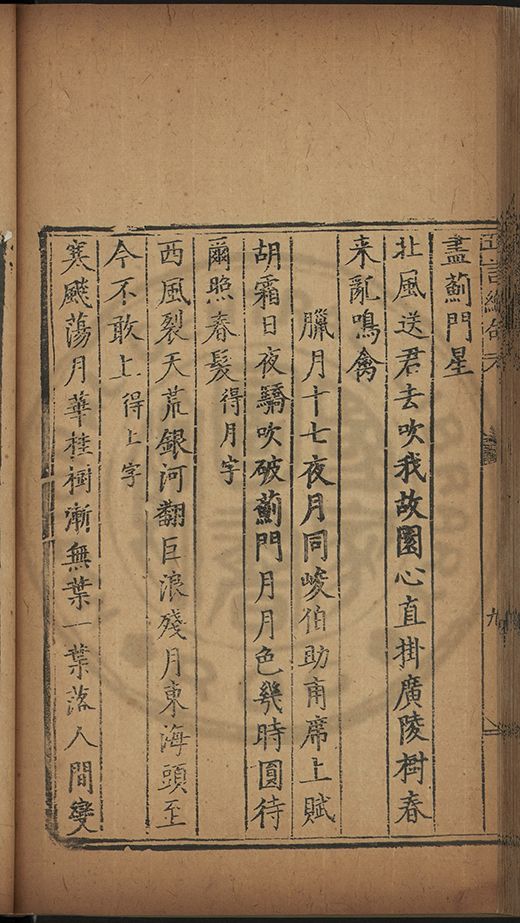 五言絶句 九
盡薊門星
北風送君去吹我故園心直掛廣陵樹春
来亂鳴禽
臘月十七夜月同峻伯助甫席上賦
胡霜日夜驕吹破薊門月月色幾時圓待
爾照春髮得月字
西風裂天荒銀河翻巨浪殘月東海頭至
今不敢上得上字
寒飇蕩月華桂樹漸無葉一葉落人間變